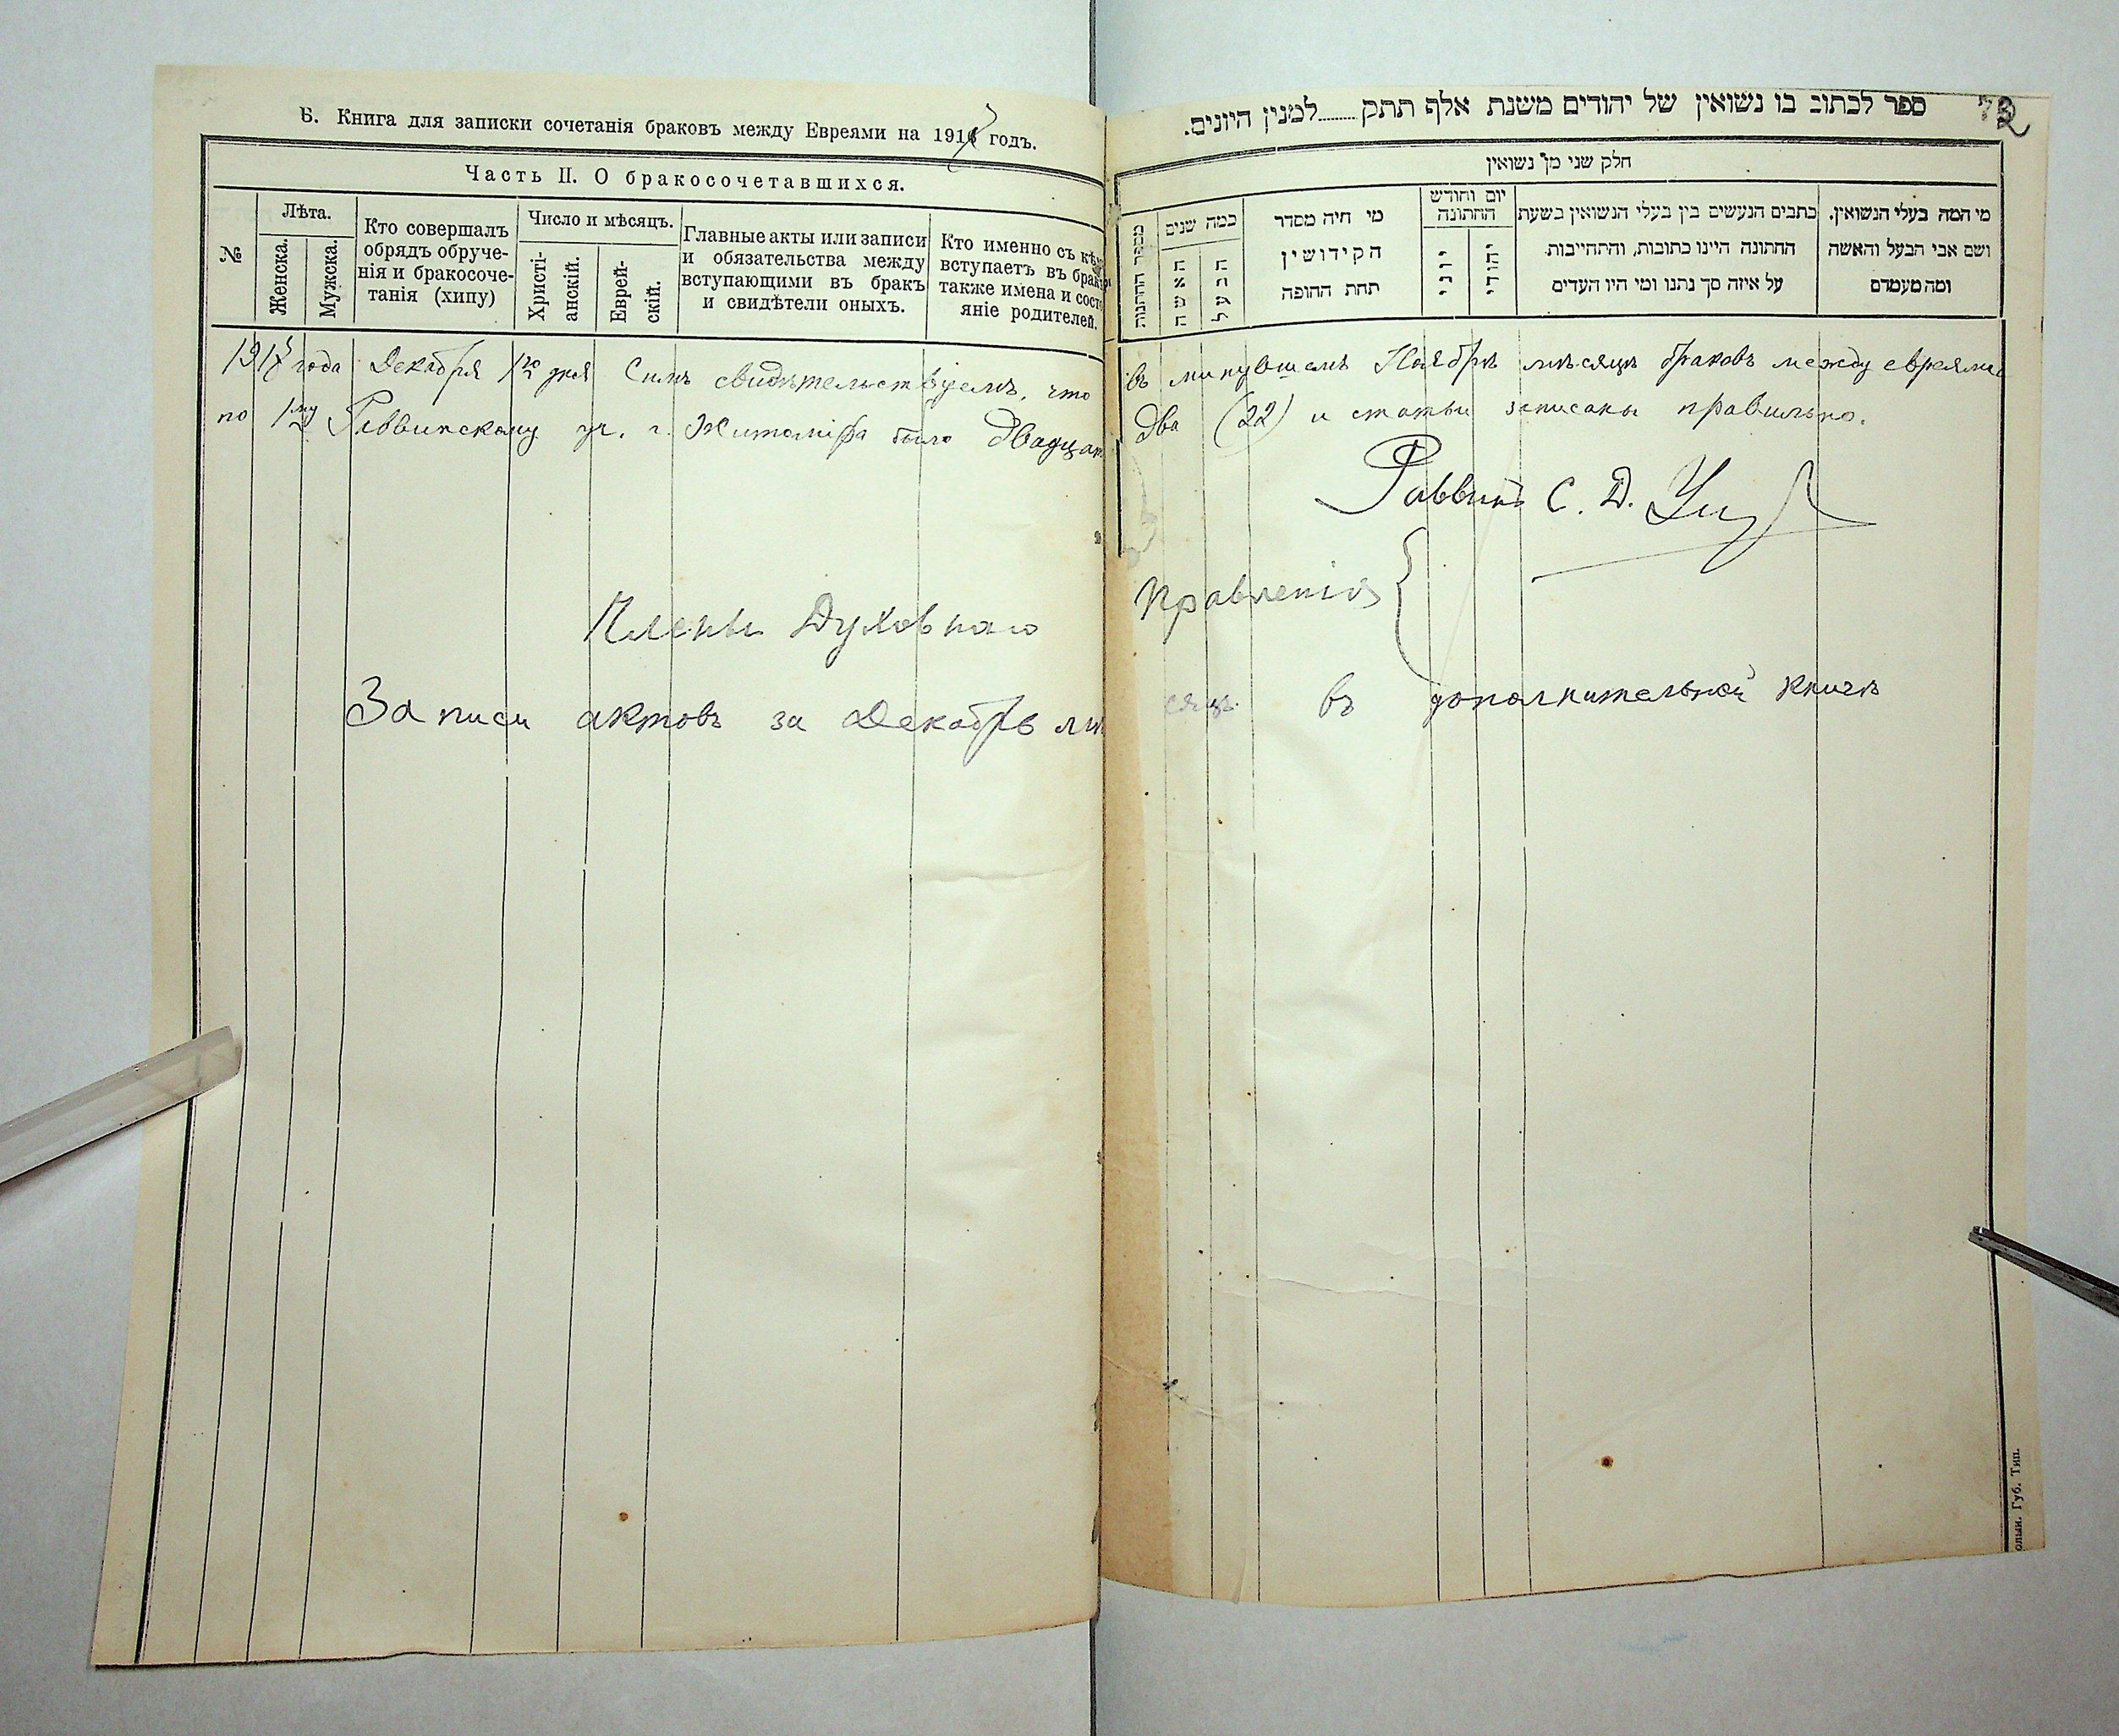 Б. Книга для записки сочетанія браковъ между Евреями на 1917 годъ.
Часть II. О бракосочетавшихся.
№
Лѣта.
Женска.
Мужска.
Кто совершалъ
обрядъ обруче-
нія и бракосоче-
танія (хипу)
Число и мѣсяцъ.
Христі-
анскій.
Еврей-
скій.
Главные акты или записи
и обязательства между
вступающими въ бракъ
и свидѣтели оныхъ.
Кто именно съ кѣмъ
вступаетъ въ бракъ
также имена и состо
яніе родителей.
1917 года Декабря 1го дня Симъ свидѣтельствуемъ, что
по 1му Раввинскому уч. г. Житоміра было двадцат
Члены Духовнаго
Записи актовъ за Декабрь мѣ
ספר לכתוב בו נשואין של יהודים משנת אלף תתק.........למנין היונים.
חלק שני מן נשואין
מספר החתונות
כמה שנים
האשה
הבעל
מי היה מסדר
הקידושין
תחת החופה
יום וחודש
החתונה
יוני
יהודי
כתבים הנעשים בין בעלי הנשואין בשעת
החתונה היינו כתובות, והתחייבות
על איזה סך נתנו ומי היו העדים
מי המה בעלי הנשואין.
ושם אבי הבעל והאשה
ומה מעמדם
въ минувшемъ Ноябрѣ мѣсяцѣ браковъ между евреями
два (22) и статьи записаны правильно.
Раввинъ С. Д.
Правленія
сяцъ въ дополнительной книгѣ
Губ. Тип.